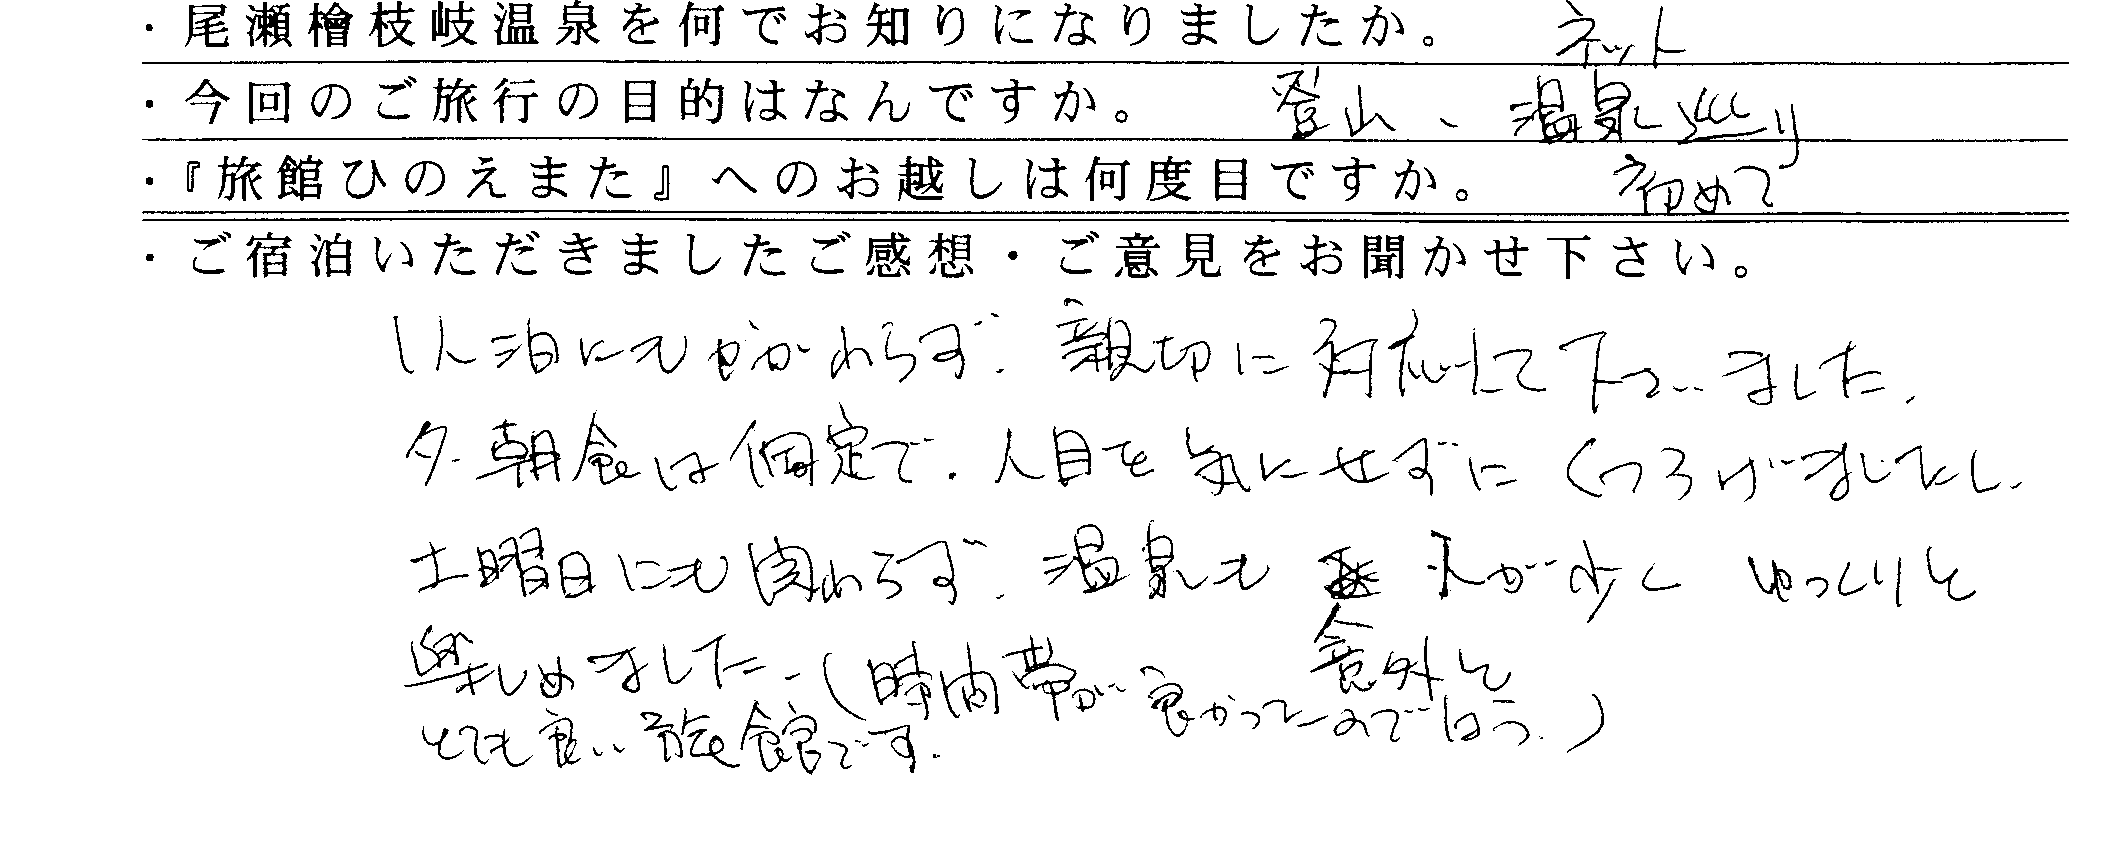 ・尾瀬檜枝岐温泉を何でお知りになりましたか。 ネット
・今回のご旅行の目的はなんですか。 登山、温泉巡り
・『旅館ひのえまた』へのお越しは何度目ですか。 初めて
・ご宿泊いただきましたご感想・ご意見をお聞かせ下さい。
1人泊にもかかわらず、親切に対応して下さいました。
夕、朝食は個室で、人目を気にせずにくつろげましたし、
土曜日にも関わらず、温泉も 人が少く ゆっくりと
意外と
楽しめました。(時間帯が良かったのでは?)
とても良い旅館です。